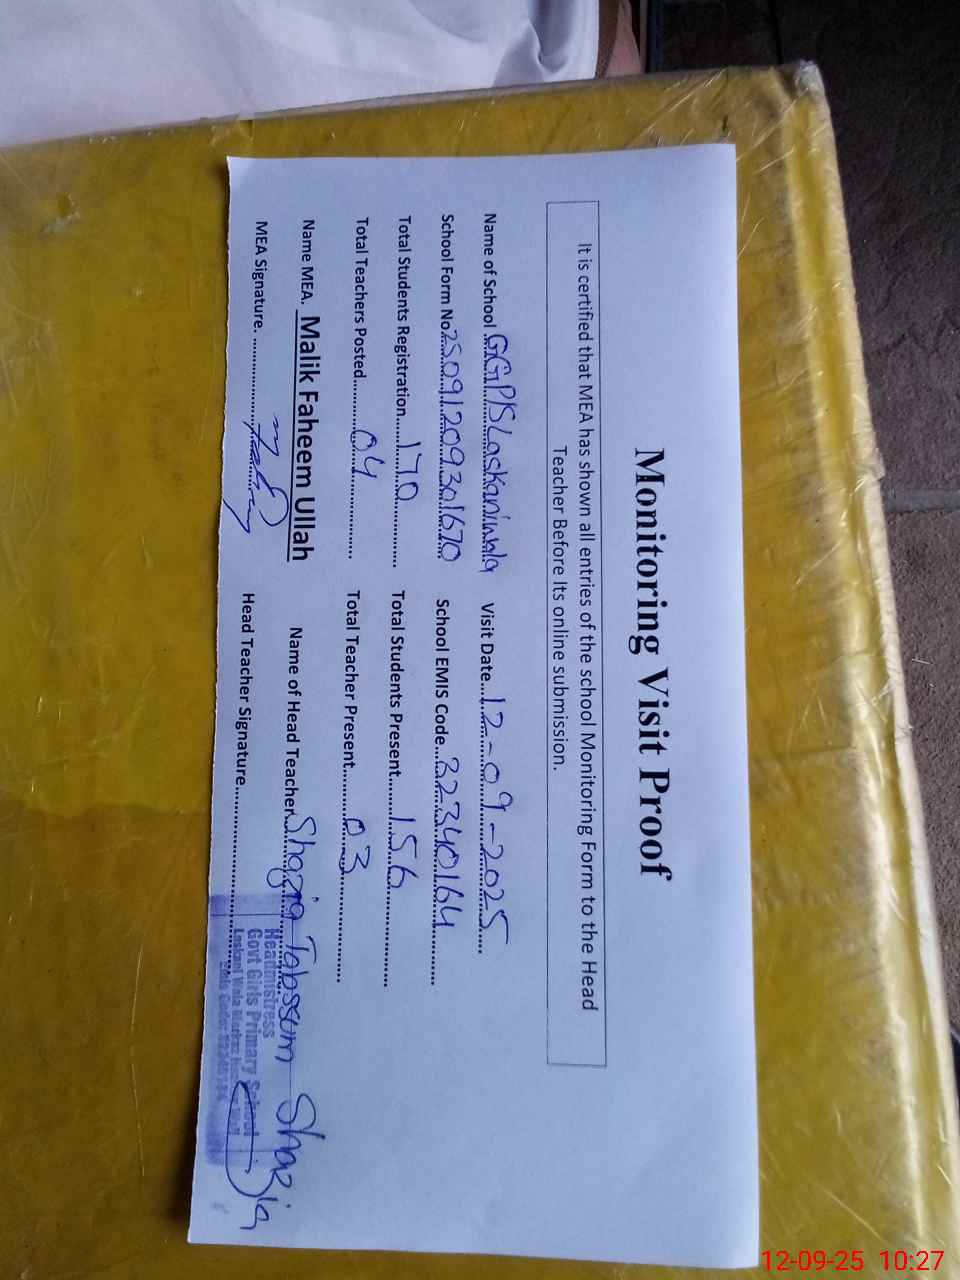 Monitoring Visit Proof
It is certified that MEA has shown all entries of the school Monitoring Form to the Head
Teacher Before Its online submission.
Name of School GGP/S Laskaniwala Visit Date....12-09-2025
School Form No 25091209301670 School EMIS Code...32340164
Total Students Registration....170 Total Students Present...156
Total Teachers Posted.........04 Total Teacher Present.........03
Name MEA. Malik Faheem Ullah Name of Head Teacher Shazia Tabssum Shazia
MEA Signature. Head Teacher Signature
Headmistress
Govt Girls Primary School
Laskani Wala Markaz
Emis Code: 32340164
12-09-25 10:27